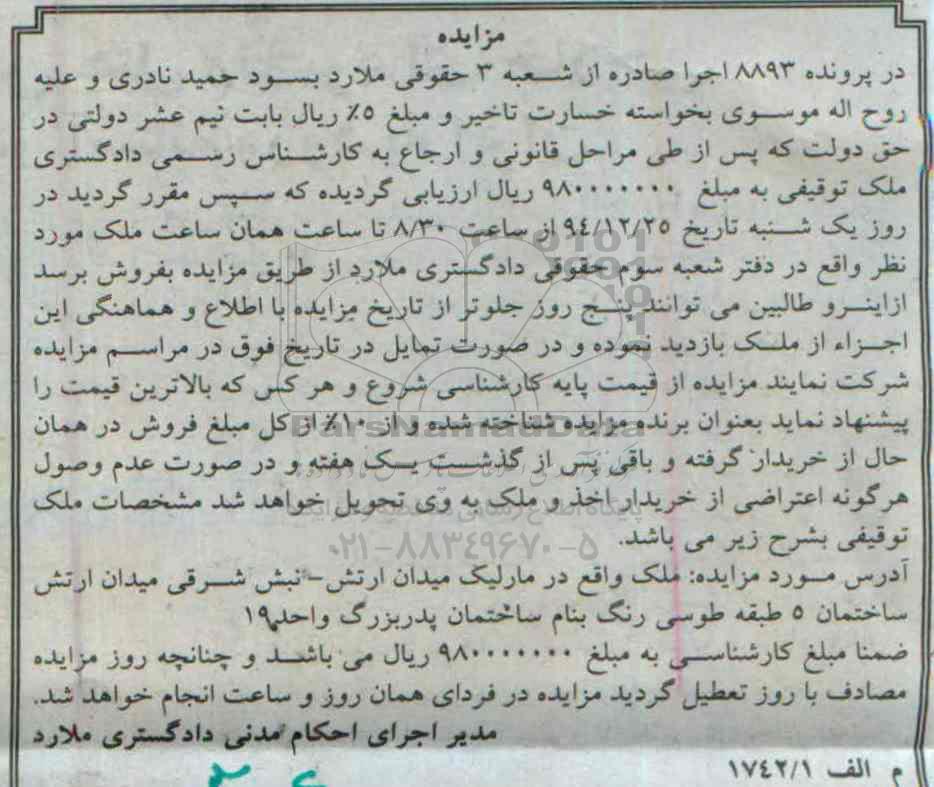 مزایده
در پرونده ۸۸۹۳ اجرا صادره از شعبه ۳ حقوقی ملارد بسود حمید نادری و علیه
روح اله موسوی بخواسته خسارت تاخیر و مبلغ ۵٪ ریال بابت نیم عشر دولتی در
حق دولت که پس از طی مراحل قانونی و ارجاع به کارشناس رسمی دادگستری
ملک توقیفی به مبلغ ۹۸۰۰۰۰۰۰۰۰ ریال ارزیابی گردیده که سپس مقرر گردید در
روز یک شنبه تاریخ ۹٤/۱۲/۲۵ از ساعت ۸/۳۰ تا ساعت همان ساعت ملک مورد
نظر واقع در دفتر شعبه سوم حقوقی دادگستری ملارد از طریق مزایده بفروش برسد
ازاینرو طالبین می توانند پنج روز جلوتر از تاریخ مزایده با اطلاع و هماهنگی این
اجزاء از ملک بازدید نموده و در صورت تمایل در تاریخ فوق در مراسم مزایده
شرکت نمایند مزایده از قیمت پایه کارشناسی شروع و هر کس که بالاترین قیمت را
پیشنهاد نماید بعنوان برنده مزایده شناخته شده و از ۱۰٪ از کل مبلغ فروش در همان
حال از خریدار گرفته و باقی پس از گذشت یک هفته و در صورت عدم وصول
هرگونه اعتراضی از خریدار اخذ و ملک به وی تحویل خواهد شد مشخصات ملک
توقیفی بشرح زیر می باشد.
آدرس مورد مزایده: ملک واقع در مارلیک میدان ارتش- نبش شرقی میدان ارتش
ساختمان ۵ طبقه طوسی رنگ بنام ساختمان پدربزرگ واحد ۱۹
ضمنا مبلغ کارشناسی به مبلغ ۹۸۰۰۰۰۰۰۰۰ ریال می باشد و چنانچه روز مزایده
مصادف با روز تعطیل گردید مزایده در فردای همان روز و ساعت انجام خواهد شد.
مدیر اجرای احکام مدنی دادگستری ملارد
م الف ۱۷٤۲/۱
ParsNamadData
۰۲۱-۸۸۳٤۹۶۷۰-۵